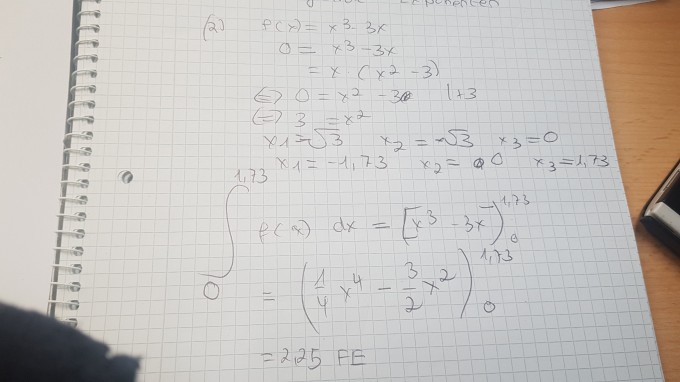 Exponenten
(2) f(x) = x³ - 3x
0 = x³ - 3x
= x · (x² - 3)
⇔ 0 = x² - 3 |+3
⇔ 3 = x²
x1 = √3 x2 = -√3 x3 = 0
x1 = -1,73 x2 = 0 x3 = 1,73
∫₀^1,73 f(x) dx = [x³ - 3x]₀^1,73
= (1/4 x⁴ - 3/2 x²)₀^1,73
= 2,25 FE